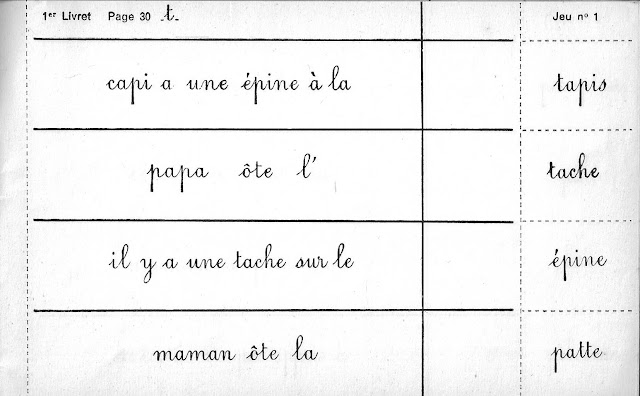 1er Livret Page 30 t. Jeu nº 1
capi a une épine à la tapis
papa ôte l' tache
il y a une tache sur le épine
maman ôte la patte